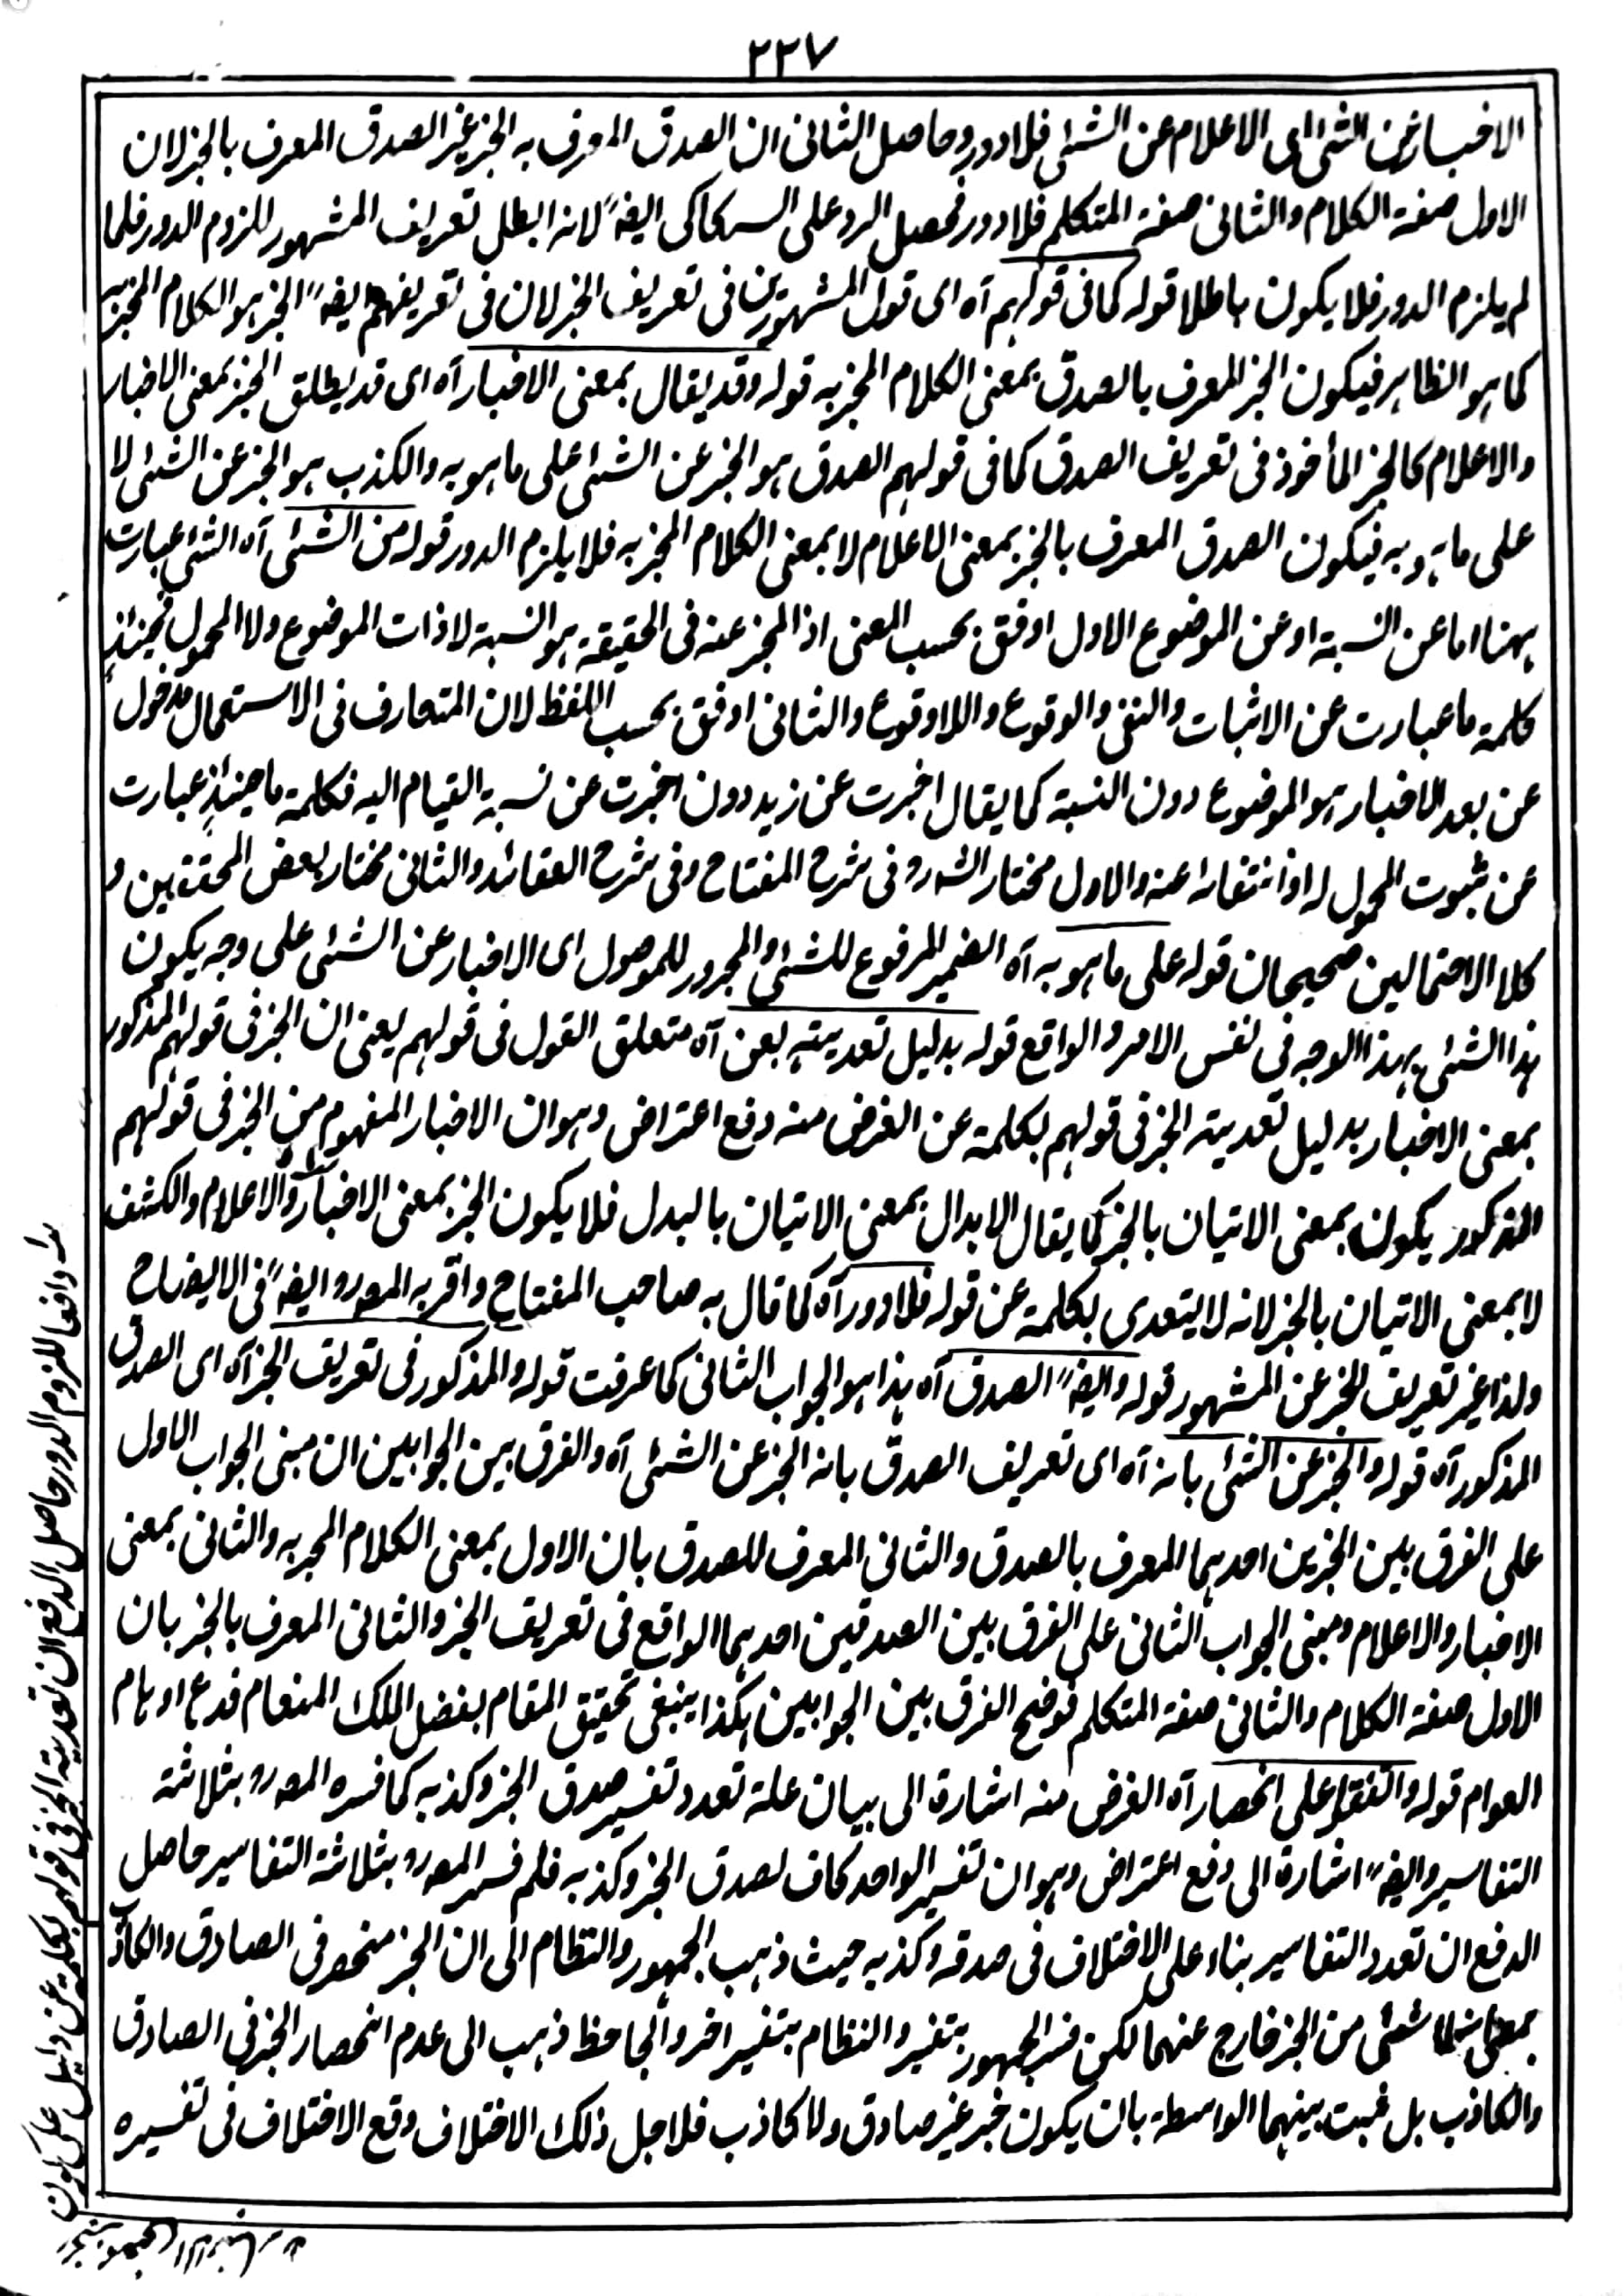 ٢٢٧
الاخبار عن الشئ اى الاعلام عن الشئ فلا دور وحاصل الثانى ان الصدق المعرف به الخبر غير الصدق المعرف بالخبر لان
الاول صفة الكلام والثانى صفة المتكلم فلا دور فحصل الرد على السكاكى ايضہ لانه ابطل تعريف المشهور للزوم الدور فلما
لم يلزم الدور فلا يكون باطلا قوله كما فى قولهم آه اى قول المشهورين فى تعريف الخبر لان فى تعريفهم ايضہ الخبر هو الكلام المخبر به
كما هو الظاهر فيكون الخبر المعرف بالصدق بمعنى الكلام المخبر به قوله وقد يقال بمعنى الاخبار آه اى قد يطلق الخبر بمعنى الاخبار
والاعلام كالخبر المأخوذ فى تعريف الصدق كما فى قولهم الصدق هو الخبر عن الشئ على ما هو به والكذب هو الخبر عن الشئ لا
على ما هو به فيكون الصدق المعرف بالخبر بمعنى الاعلام لا بمعنى الكلام المخبر به فلا يلزم الدور قوله من الشئ آه الشئ عبارت
ههنا اما عن النسبة او عن الموضوع الاول اوفق بحسب المعنى اذ المخبر عنه فى الحقيقة هو النسبة لا ذات الموضوع ولا المحمول فحينئذٍ
كلمة ما عبارت عن الاثبات والنفى والوقوع واللاوقوع والثانى اوفق بحسب اللفظ لان المتعارف فى الاستعمال مدخول
عن بعد الاخبار هو الموضوع دون النسبة كما يقال اخبرت عن زيد دون اخبرت عن نسبة القيام اليه فكلمة ما حينئذٍ عبارت
عن ثبوت المحمول له او انتفائه عنه والاول مختار الشہ رہ فى شرح المفتاح وفى شرح العقائد والثانى مختار بعض المحققين و
كلا الاحتمالين صحيحان قوله على ما هو به آه الضمير المرفوع للشئ والمجرور للموصول اى الاخبار عن الشئ على وجه يكون
هذا الشئ بهذا الوجه فى نفس الامر والواقع قوله بدليل تعديته بعن آه متعلق القول فى قولهم يعنى ان الخبر فى قولهم المذكور
بمعنى الاخبار بدليل تعدية الخبر فى قولهم بكلمة عن الغرض منه دفع اعتراض وهو ان الاخبار المفهوم من الخبر فى قولهم
المذكور يكون بمعنى الاتيان بالخبر كما يقال الابدال بمعنى الاتيان بالبدل فلا يكون الخبر بمعنى الاخبار والاعلام والكشف
لا بمعنى الاتيان بالخبر لانه لا يتعدى بكلمة عن قوله فلا دور آه كما قال به صاحب المفتاح واقر به المصہ رہ ايضہ فى الايضاح
ولذا غير تعريف الخبر عن المشهور قوله وايضہ الصدق آه هذا هو الجواب الثانى كما عرفت قوله والمذكور فى تعريف الخبر آه اى الصدق
المذكور آه قوله والخبر عن الشئ بانه آه اى تعريف الصدق بانه الخبر عن الشئ آه والفرق بين الجوابين ان مبنى الجواب الاول
على الفرق بين الخبرين احدهما المعرف بالصدق والثانى المعرف للصدق بان الاول بمعنى الكلام المخبر به والثانى بمعنى
الاخبار والاعلام ومبنى الجواب الثانى على الفرق بين الصدقين احدهما الواقع فى تعريف الخبر والثانى المعرف بالخبر بان
الاول صفة الكلام والثانى صفة المتكلم فوضح الفرق بين الجوابين هكذا ينبغى تحقيق المقام بفضل الملك المنعام فدع اوهام
العوام قوله واتفقوا على انحصار آه الغرض منه اشارة الى بيان علة تعدد تفسير صدق الخبر وكذبه كما فسره المصہ رہ بثلاثة
التفاسير وايضہ اشارة الى دفع اعتراض وهو ان تفسير الواحد كاف لصدق الخبر وكذبه فلم فسر المصہ رہ بثلاثة التفاسير حاصل
الدفع ان تعدد التفاسير بناء على الاختلاف فى صدقه وكذبه حيث ذهب الجمهور والنظام الى ان الخبر منحصر فى الصادق والكاذب
شئ من الخبر خارج عنهما لكن فسر الجمهور بتفسير والنظام بتفسير اخر والجاحظ ذهب الى عدم انحصار الخبر فى الصادق
والكاذب بل ثبت بينهما الواسطة بان يكون خبر غير صادق ولا كاذب فلاجل ذلك الاختلاف وقع الاختلاف فى تفسيره
دافعا للزوم الدور حاصل الدفع ان تعدية الخبر فى قولهم بكلمة عن دليل على كون